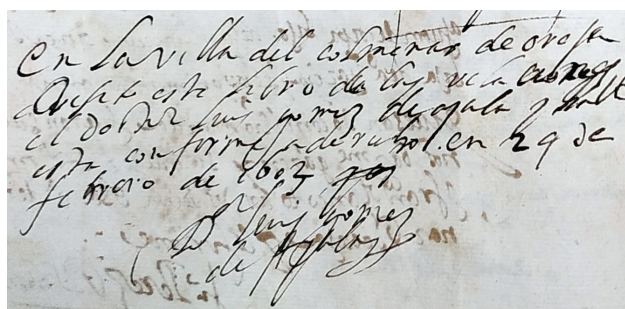 En la villa del colmenar de oreja
este libro de las
el Doctor luis gomez de ayala y
esta conforme a derecho. en 29 de
febrero de 1603
D luis gomez
de Ayala